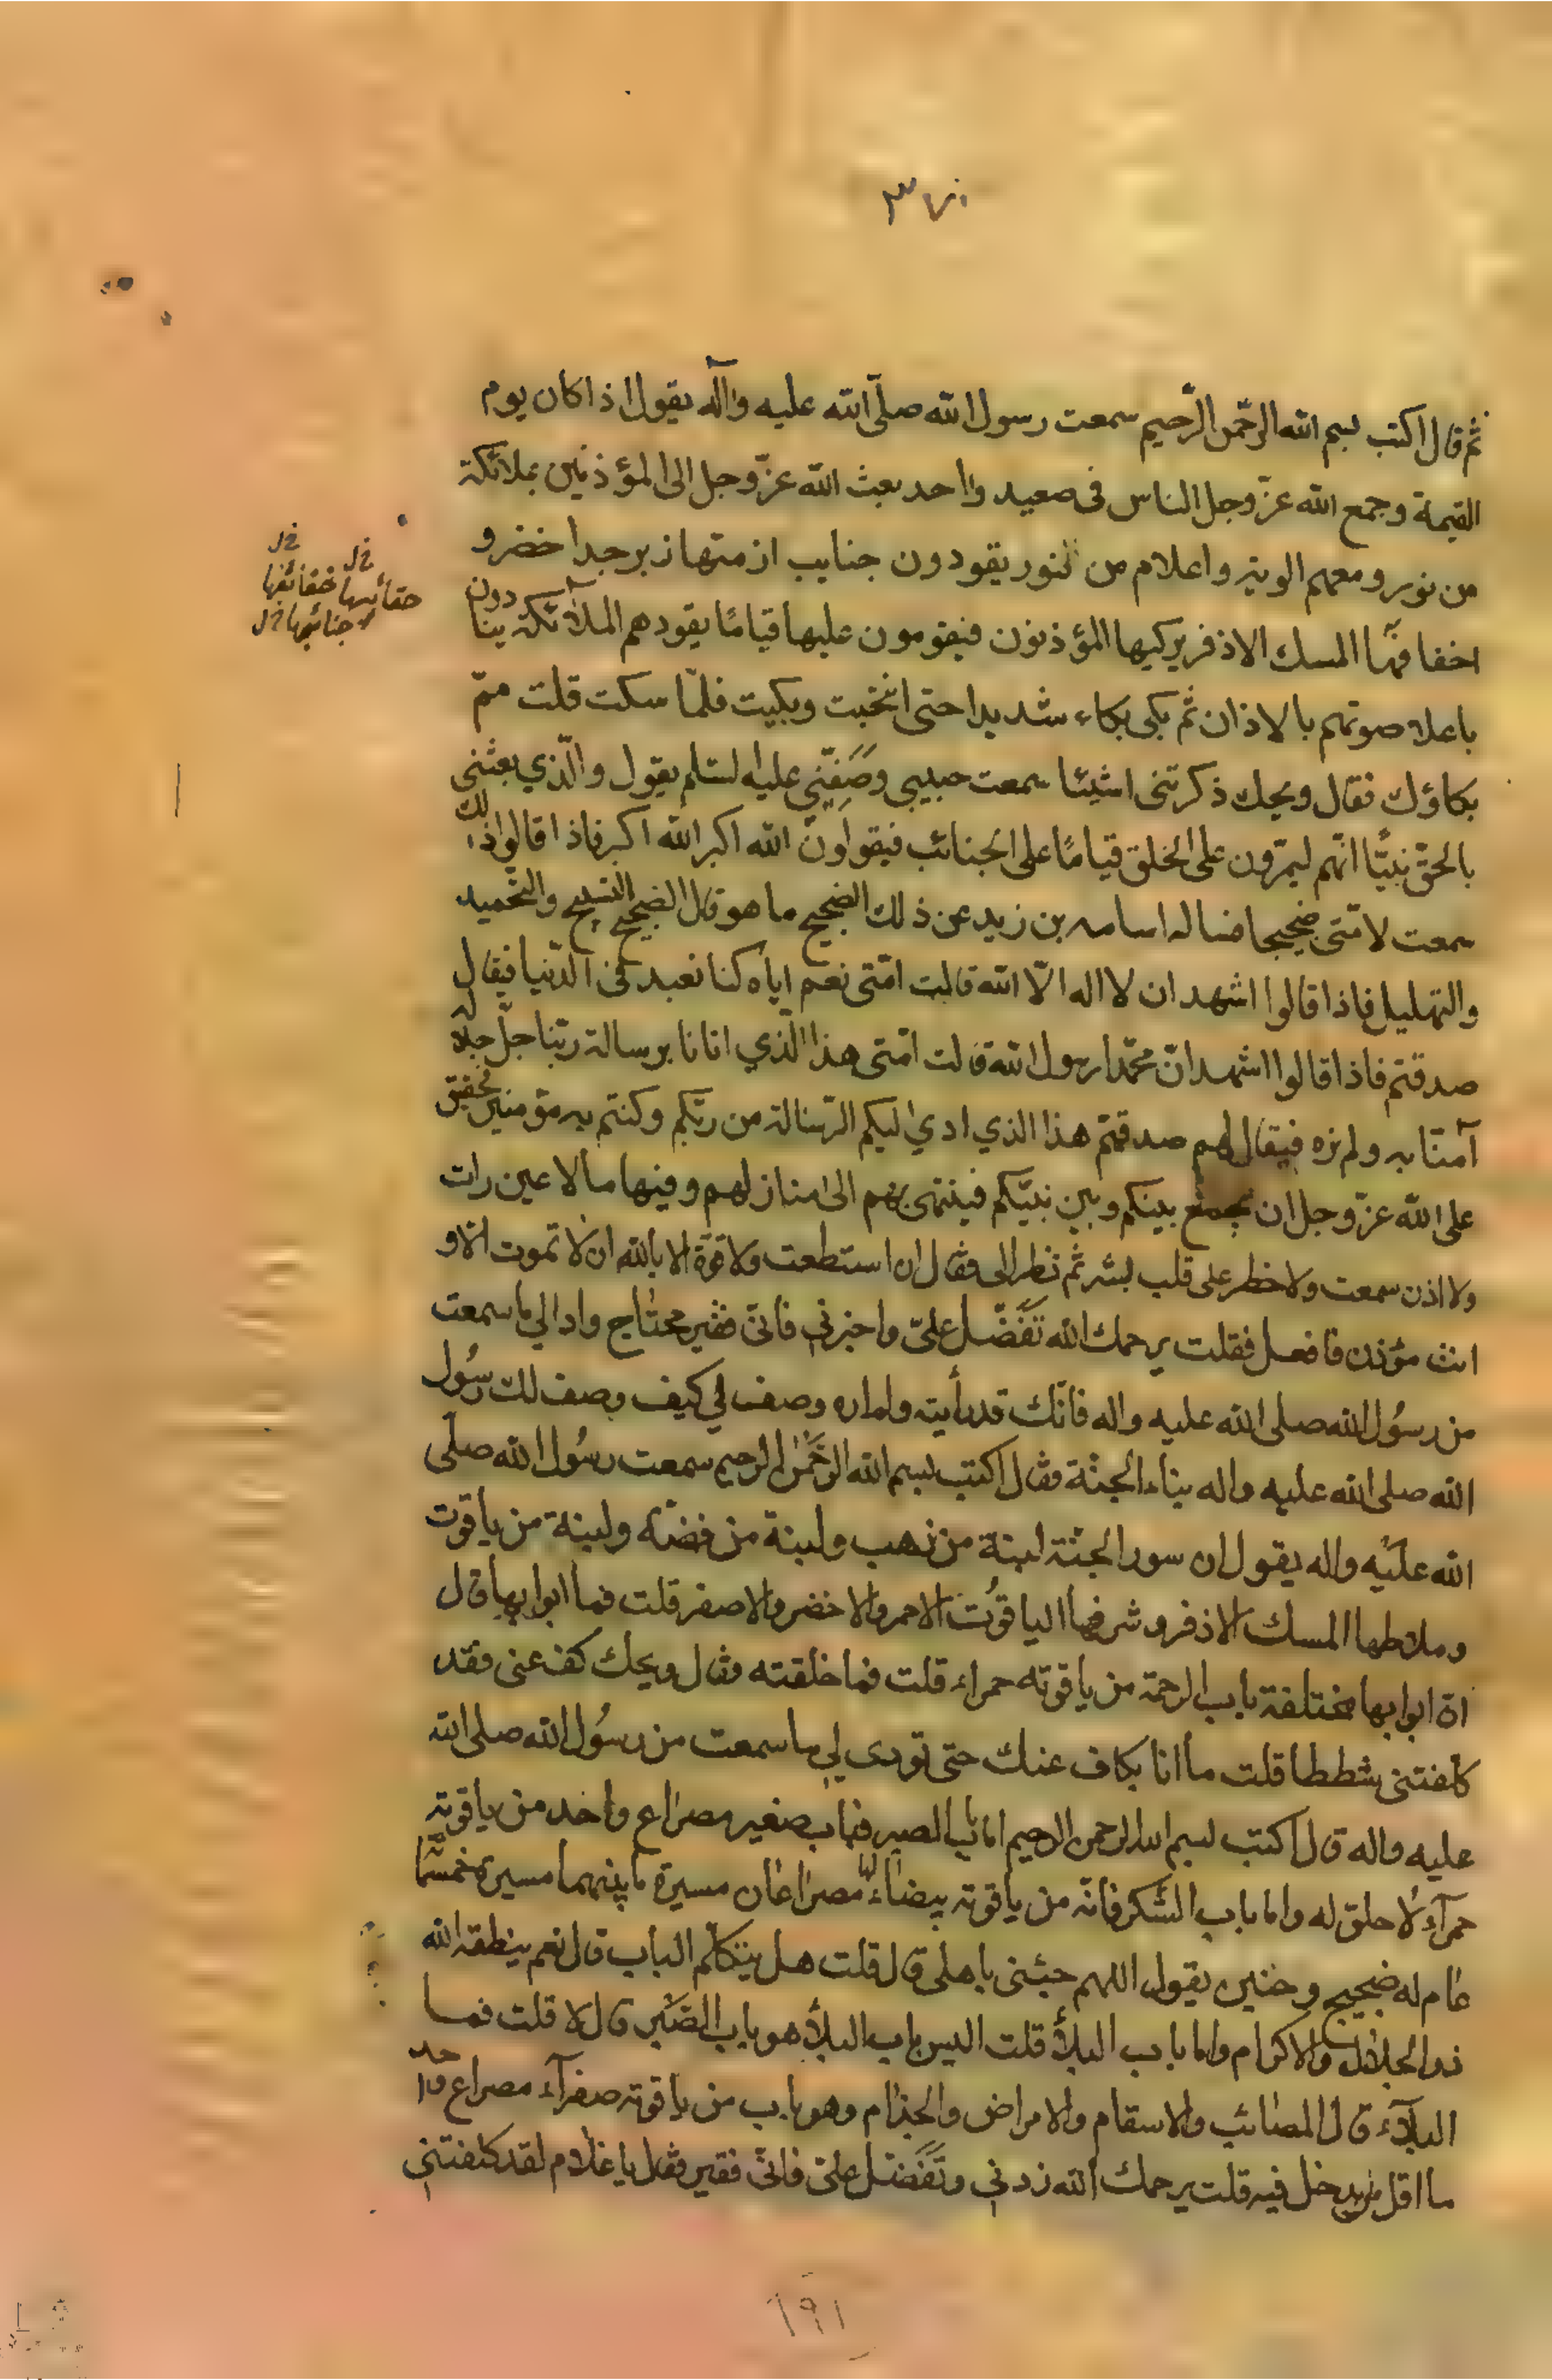 ٣٧٠
ثم قال اكتب بسم الله الرحمن الرحيم سمعت رسول الله صلّى الله عليه وآله يقول اذا كان يوم
القيمة وجمع الله عزّ وجل الناس فى صعيد واحد بعث الله عزّ وجل الى المؤذنين بملائكة
من نور ومعهم الوية واعلام من نور يقودون جنايب ازمتها زبرجد اخضر و
اخفافها المسك الاذفر يركبها المؤذنون فيقومون عليها قيامًا يقودهم الملآئكة ينادون
باعلا صوتهم بالاذان ثم بكى بكاء شديدا حتى انتحبت وبكيت فلمّا سكت قلت ممّ
بكاؤك فقال ويحك ذكرتنى اشيئا سمعت حبيبى وصَفِيّى عليه السّلم يقول والّذي بعثنى
بالحقّ نبيًّا انّهم ليمرّون على الخلق قيامًا على الجنائب فيقولون الله اكبر الله اكبر فاذا قالوا ذلك
سمعت لامّتى ضجيجا فساله اسامه بن زيد عن ذلك الضجيج ما هو قال الضجيج التسبيح والتحميد
والتهليل فاذا قالوا اشهد ان لا اله الّا الله قالت امّتى نعم اياه كنا نعبد فى الدّنيا فيقال
صدقتم فاذا قالوا اشهد انّ محمّدا رسول الله قالت امّتى هذا الّذي اتانا برسالة ربّنا جلّ جلاله
آمنّا به ولم نره فيقال لهم صدقتم هذا الذي ادي اليكم الرّسالة من ربّكم وكنتم به مؤمنين فحقيق
على الله عزّ وجل ان يجمع بينكم وبين نبيّكم فينتهى بهم الى منازلهم وفيها ما لا عين رات
ولا اذن سمعت ولا خطر على قلب بشر ثم نظر الى فقال ان استطعت ولا قوّة الا بالله ان لا تموت الا و
انت مؤذن فافعل فقلت يرحمك الله تَفَضَّل علىّ واخبرني فانّى فقير محتاج واد الي ما سمعت
من رسُول الله صلى الله عليه واله فانّك قد رأيته ولم اره وصف لي كيف وصف لك رسُول
الله صلى الله عليه واله بناء الجنّة فقال اكتب بسم الله الرحمٰن الرحيم سمعت رسُول الله صلّى
الله عليه واله يقول ان سور الجنّة لبنة من ذهب ولبنة من فضّة ولبنة من ياقوت
وملاطها المسك الاذفر وشرفها الياقوُت الاحمر والاخضر والاصفر قلت فما ابوابها قال
انّ ابوابها مختلفة باب الرحمة من ياقوته حمراء قلت فما حلقته فقال ويحك كف عنى فقد
كلّفتنى شططا قلت ما انا بكاف عنك حتى تؤدى لي ما سمعت من رسُول الله صلى الله
عليه واله قال اكتب بسم الله الرحمن الرحيم اما باب الصبر فباب صغير مصراع واحد من ياقوته
حمرآء لا حلق له واما باب الشّكر فانّه من ياقوته بيضاء لها مصراعان مسيرة ما بينهما مسيرة خمسمّا
عام له ضجيج وحنين يقول اللهم جئنى باهلى قال قلت هل يتكلّم الباب قال نعم ينطقه الله
ذو الجلال والاكرام واما باب البلأ قلت اليس باب البلأ هو باب الصّبر قال لا قلت فما
البلآء قال المصائب والاسقام والامراض والجذام وهو باب من ياقوته صفرآء مصراع واحد
ما اقل من يدخل فيه قلت يرحمك الله زدني وتَفَضّل علىّ فانّى فقير فقال يا غلام لقد كلفتنى
حقائبها خفائفها خ ل
جنائبها خ ل
١٩١